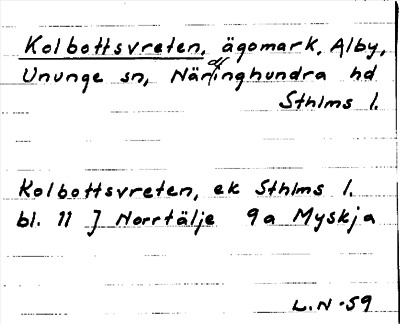 Kolbottsvreten, ägomark, Alby,
Ununge sn, Närdinghundra hd
Sthlms l.
Kolbottsvreten, ek Sthlms l.
bl. 11 J Norrtälje 9a Myskja
L.N-59